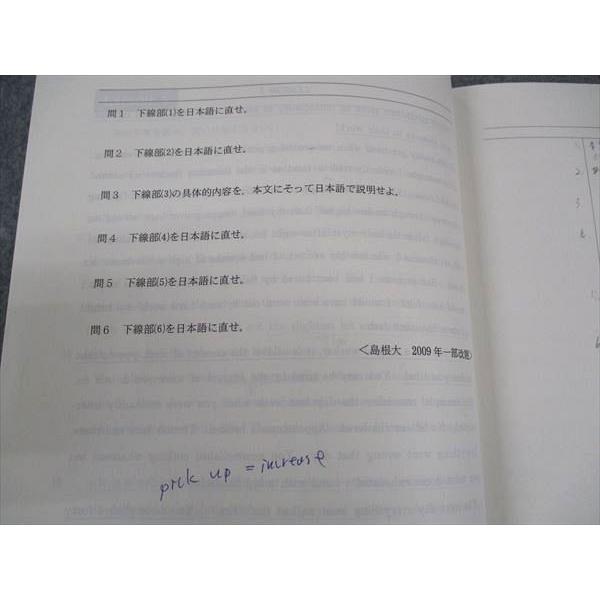 問1 下線部(1)を日本語に直せ。
問2 下線部(2)を日本語に直せ。
問3 下線部(3)の具体的内容を、本文にそって日本語で説明せよ。
問4 下線部(4)を日本語に直せ。
問5 下線部(5)を日本語に直せ。
問6 下線部(6)を日本語に直せ。
<島根大 2009年一部改題>
pick up = increase
2.
3.